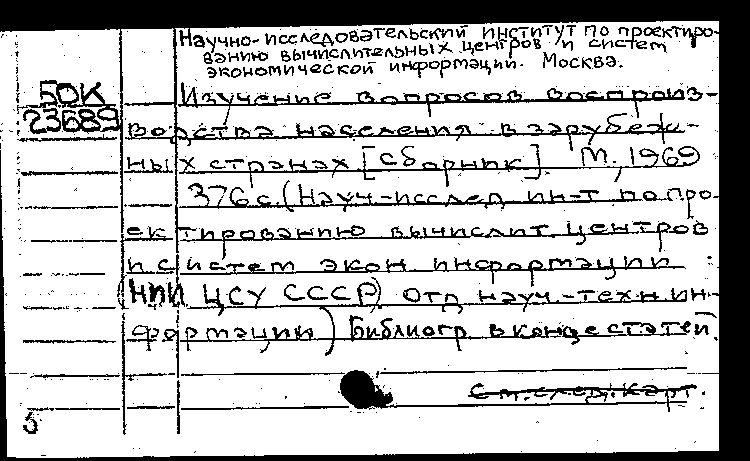 Научно-исследовательский институт по проектиро-
ванию вычислительных центров и систем
экономической информации. Москва.
БОК
23689
Изучение вопросов воспроиз-
водства населения в зарубеж-
ных странах [сборник]. М., 1969
376 с. (Науч-исслед ин-т по про-
ектированию вычислит. центров
и систем экон информации
(НИИ ЦСУ СССР) отд науч.-техн ин-
формации) Библиогр. в конце статей.
См. след. карт.
5